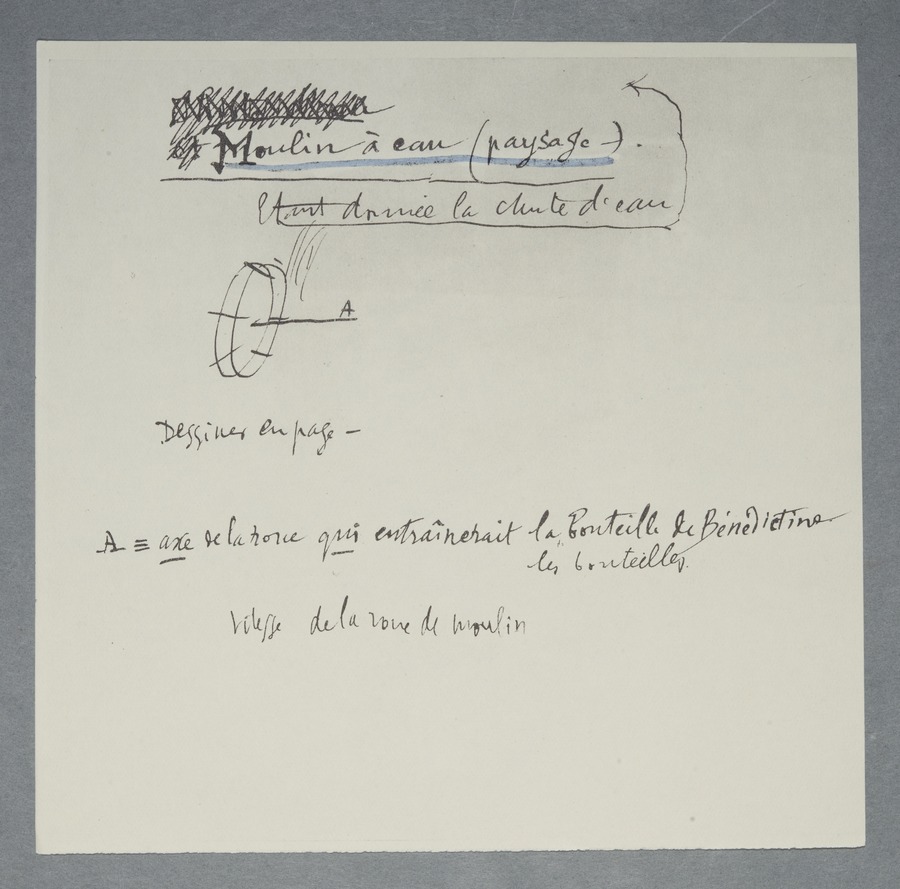 Moulin à eau (paysage -).
Etant donnée la chute d'eau
A
Dessiner en page -
A ≡ axe de la roue qui entraînerait la Bouteille de Bénédictine
les bouteilles.
Vitesse de la roue de moulin